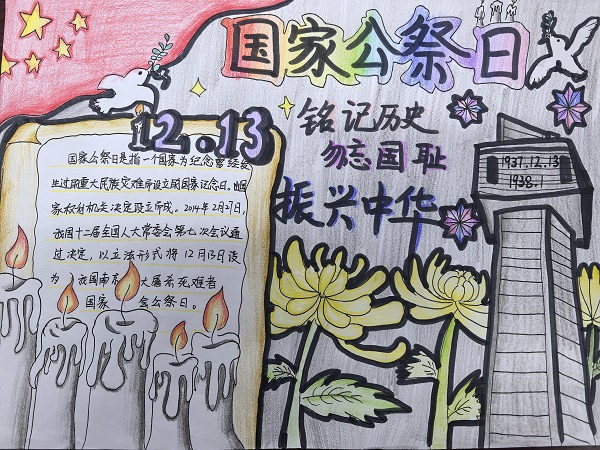 国家公祭日
12.13
铭记历史
勿忘国耻
振兴中华
国家公祭日是指一个国家为纪念曾经发
生过的重大民族灾难而设立的国家记念日。由国
家权利机关决定设立而成。2014年2月27日,
我国十二届全国人大常委会第七次会议通
过决定，以立法形式将12月13日设
为 我国南京 大屠杀死难者
国家 会公祭日。
1937.12.13
1938.1